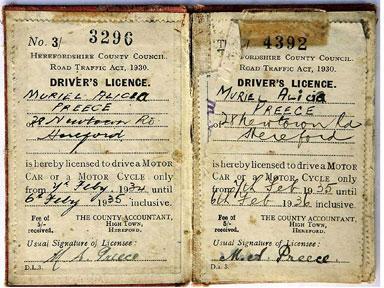 No. 3/ 3296
HEREFORDSHIRE COUNTY COUNCIL.
ROAD TRAFFIC ACT, 1930.
DRIVER'S LICENCE.
MURIEL ALICIA
PREECE
Newtown Rd
Hereford
is hereby licensed to drive a MOTOR
CAR or a MOTOR CYCLE only
from 7th Feby 1934 until
6th Feby 1935 inclusive.
Fee of
5/-
received.
THE COUNTY ACCOUNTANT,
HIGH TOWN,
HEREFORD.
Usual Signature of Licensee:
M A Preece
D.L.3.
4392
Herefordshire County Council.
ROAD TRAFFIC ACT, 1930.
DRIVER'S LICENCE.
MURIEL ALICIA
PREECE
of 28 Newtown Rd
Hereford
is hereby licensed to drive a MOTOR
CAR or a MOTOR CYCLE only
from 7th Feb 1935 until
6th Feb 1936 inclusive.
Fee of
5/-
received.
THE COUNTY ACCOUNTANT,
HIGH TOWN,
HEREFORD.
Usual Signature of Licensee:
M.A. Preece.
D.L.3.